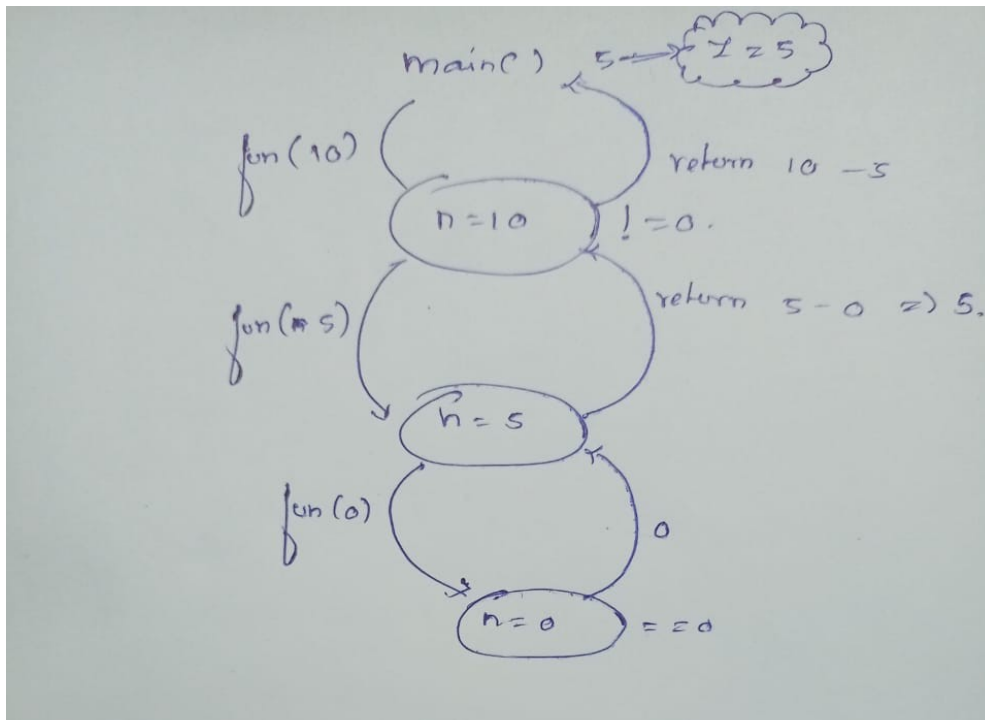 main() 5 → I = 5
fun(10)
return 10 - 5
n = 10 ! = 0.
fun(5)
return 5 - 0 => 5.
n = 5
fun(0)
0
n = 0 = = 0